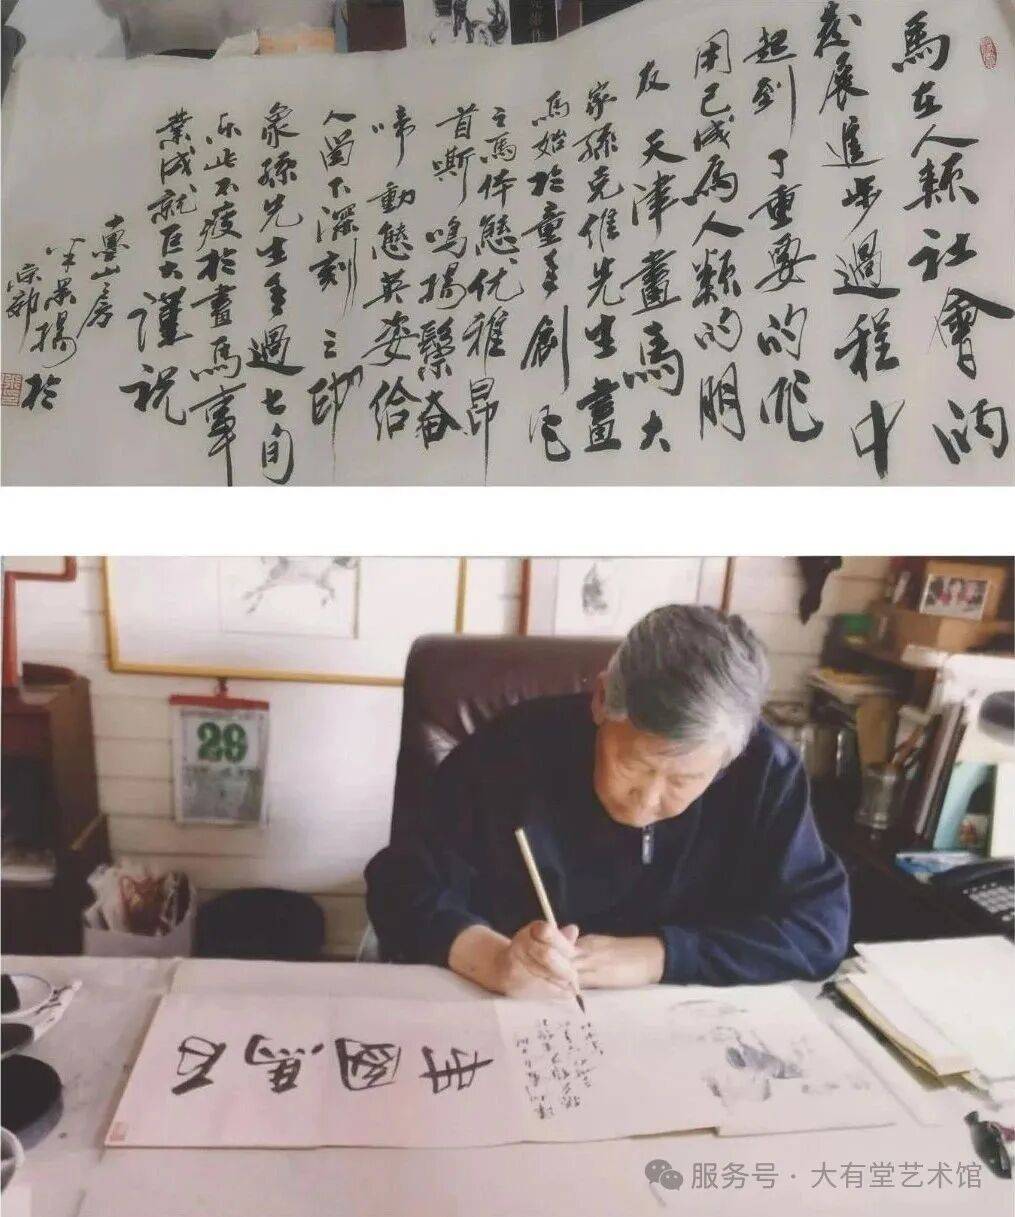 馬在人類社會的
發展進步過程中
起到了重要的作
用已成為人類的朋
友 天津畫馬大
家孫克維先生畫
馬始於童年創
之馬体態优雅昂
首嘶鳴揚鬃奋
啼動態英姿给
人留下深刻之印
象孫先生年過七旬
乐此不疲於畫馬事
業成就巨大謹祝
山房
米景揚於
京郊
29
百馬圖
服务号·大有堂艺术馆